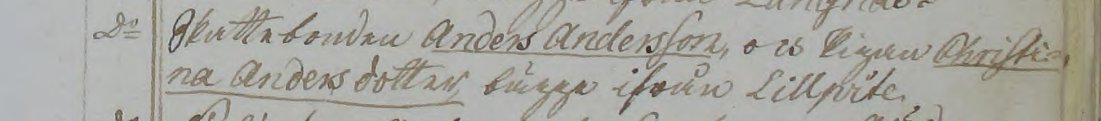 Do Skattebonden Anders Andersson, och Pigan Christi=
na Andersdotter, bägge ifrån Lillpite.